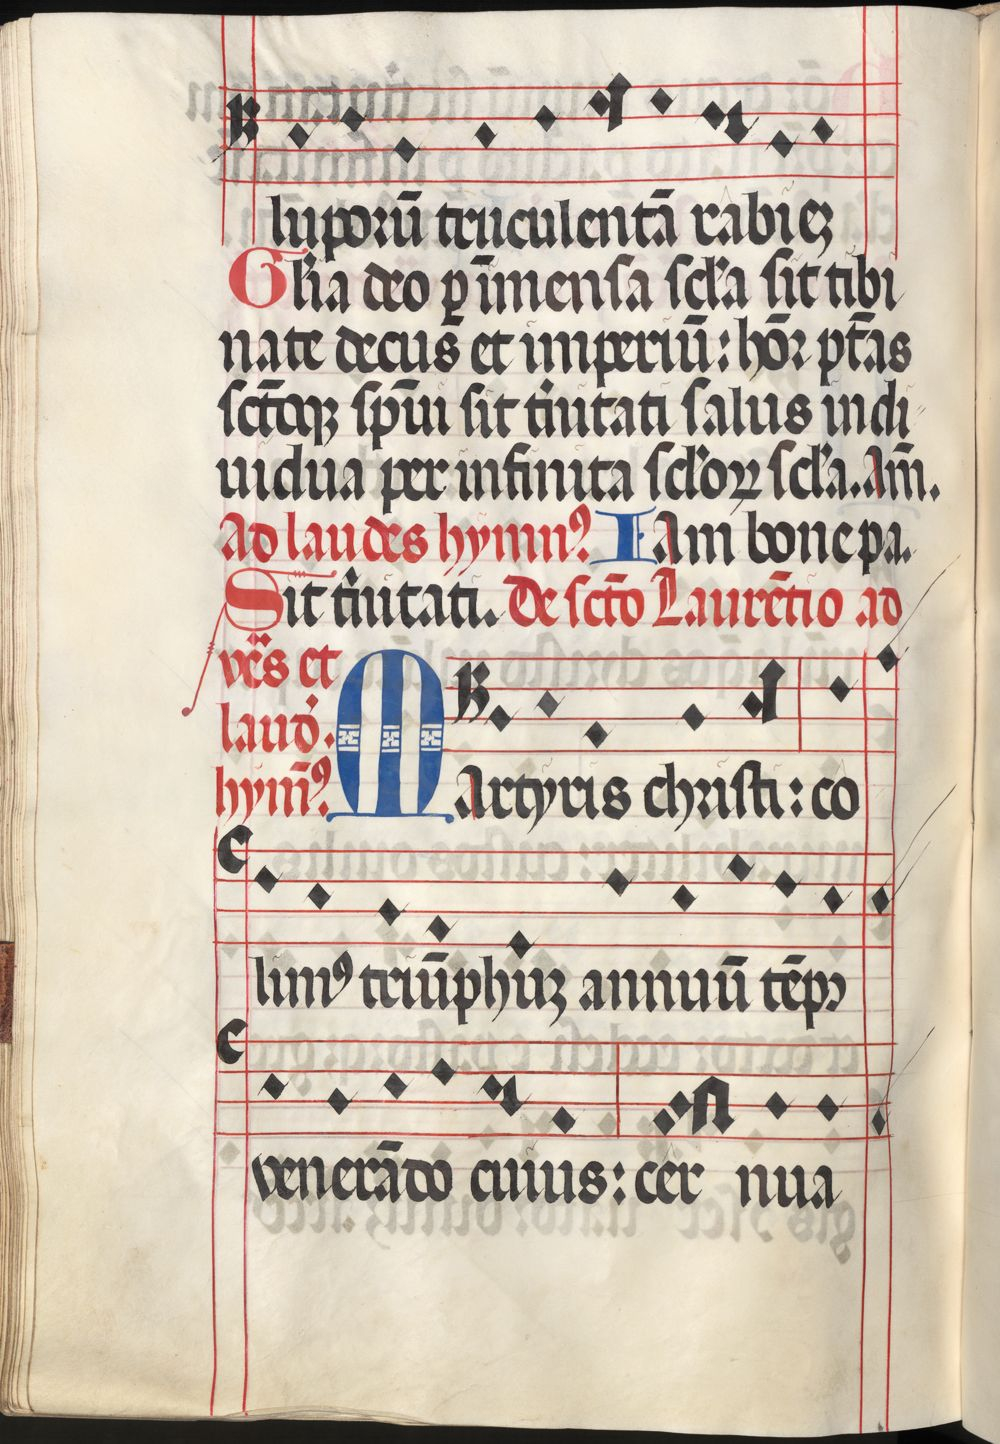 luporū truculentā rabiez
Gl̄ia deo p īmensa scl̄a sit tibi
nate decus et imperiū: hōꝛ ptās
sctōqꝫ sp̄ui sit t̄nitati salus indi
uidua per infinita scl̄oꝝ scl̄a. Am̄.
Ad laudes hymnꝰ. Iam bone pa.
Sit t̄nitati. De sctō Laurētio ad
vēs et
laud̄.
hym̄ꝰ.
Martyris christi: co
limꝰ triūphuꝫ annuū tēpꝛ
venerādo cuius: cer nua